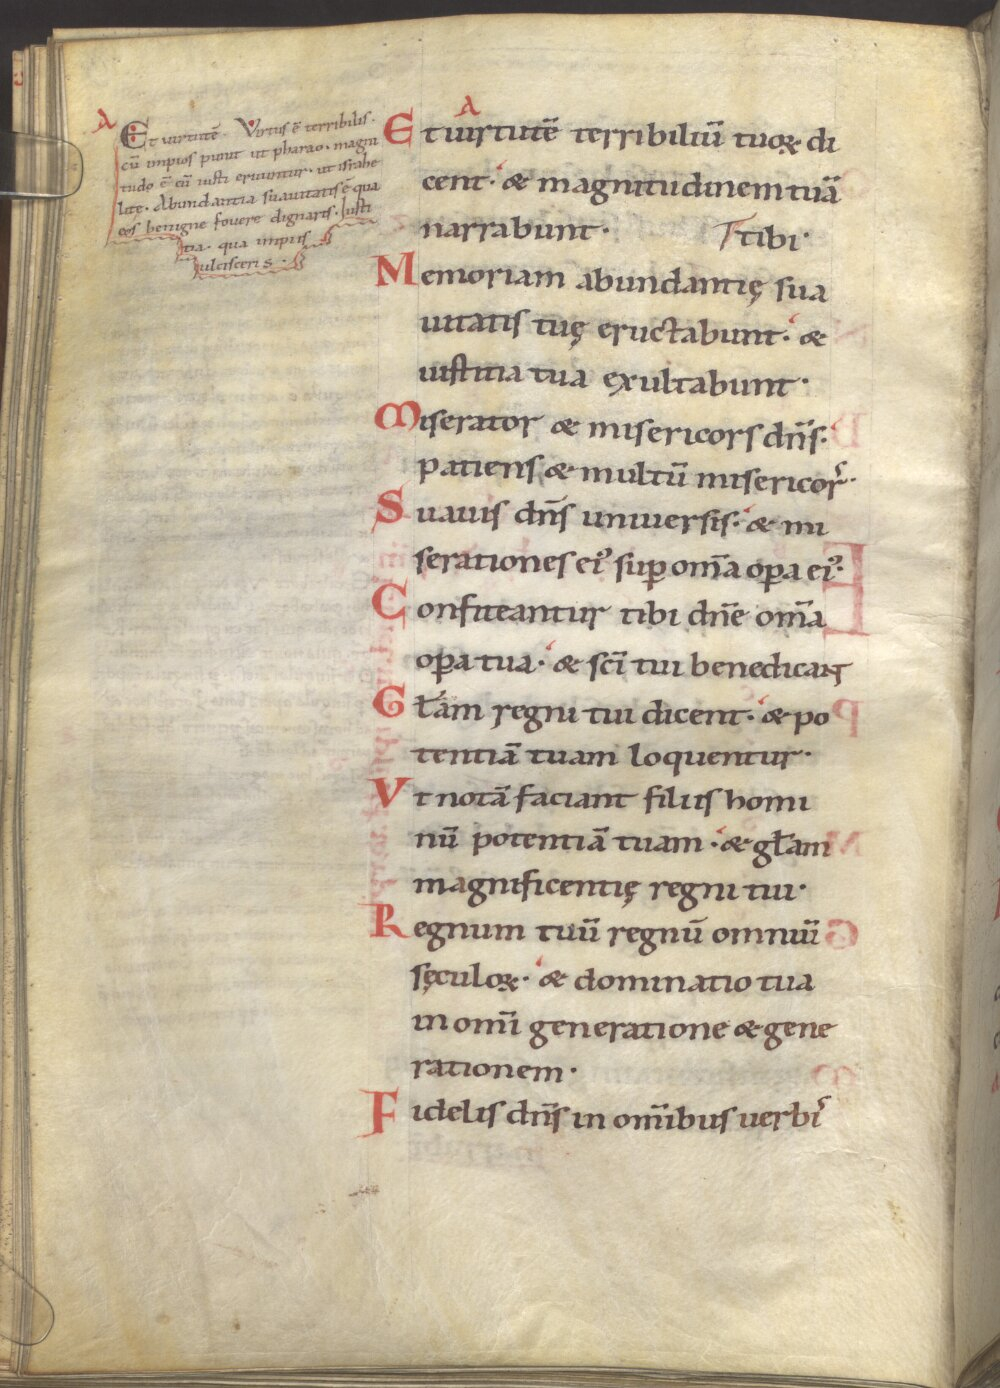 A
Et uirtutē. Virtus ē terribilis.
cū impios punit ut pharao. magni
tudo ē cū iusti eruuntur. ut israhe
lite. Abundantia suauitatis ē qua
eos benigne fouere dignaris. Iusti
tia. qua impiis
ulcisceris.
A
Et uirtutē terribiliū tuoꝝ di
cent. & magnitudinem tuā
narrabunt. tibi.
Memoriam abundantię sua
uitatis tuę eructabunt. &
iustitia tua exultabunt.
Miserator & misericors dn̄s.
patiens & multū misericorˢ.
Suauis dn̄s uniuersis. & mi
serationes eiꝰ sup om̄a opa eiꝰ.
Confiteantur tibi dn̄e om̄a
opa tua. & sc̄i tui benedicant
Gl̄am regni tui dicent. & po
tentiā tuam loquentur.
Vt notā faciant filiis homi
nū potentiā tuam. & gl̄am
magnificentię regni tui.
Regnum tuū regnū omniū
sęculoꝝ. & dominatio tua
in omi generatione & gene
rationem.
Fidelis dn̄s in om̄ibus uerbiˢ